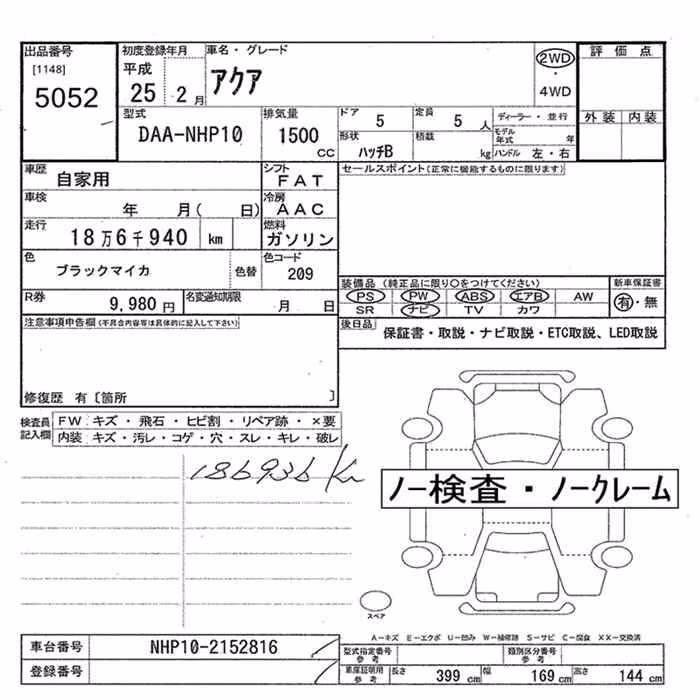 出品番号
[1148]
5052
初度登録年月
平成
25 2 月
車名・グレード
アクア
2WD
・
4WD
評価点
外装 内装
型式
DAA-NHP10
排気量
1500
CC
ドア 5
定員 5 人
ディーラー・並行
形状
ハッチB
積載
kg
モデル年式 年
ハンドル 左・右
車歴
自家用
シフト
FAT
セールスポイント(正常に機能するものに限ります)
車検
年 月( 日)
冷房
AAC
走行
18万6千940 km
燃料
ガソリン
色
ブラックマイカ
色替
色コード
209
装備品 (純正品に限り○をつけてください)
新車保証書
PS PW ABS エアB AW
有・無
SR ナビ TV カワ
R券
9,980 円
名変通知期限
月 日
後日品
保証書・取説・ナビ取説・ETC取説、LED取説
注意事項申告欄(不具合内容等は具体的に記入して下さい)
修復歴 有〔箇所 〕
検査員記入欄
FW キズ・飛石・ヒビ割・リペア跡・×要
内装 キズ・汚レ・コゲ・穴・スレ・キレ・破レ
186936 Km
ノー検査・ノークレーム
スペア
A-キズ E-エクボ U-凹み W-補修跡 S-サビ C-腐食 XX-交換済
車台番号
NHP10-2152816
登録番号
型式指定番号
参考
類別区分番号
参考
車庫証明用
参考
長さ 399 cm
幅 169 cm
高さ 144 cm